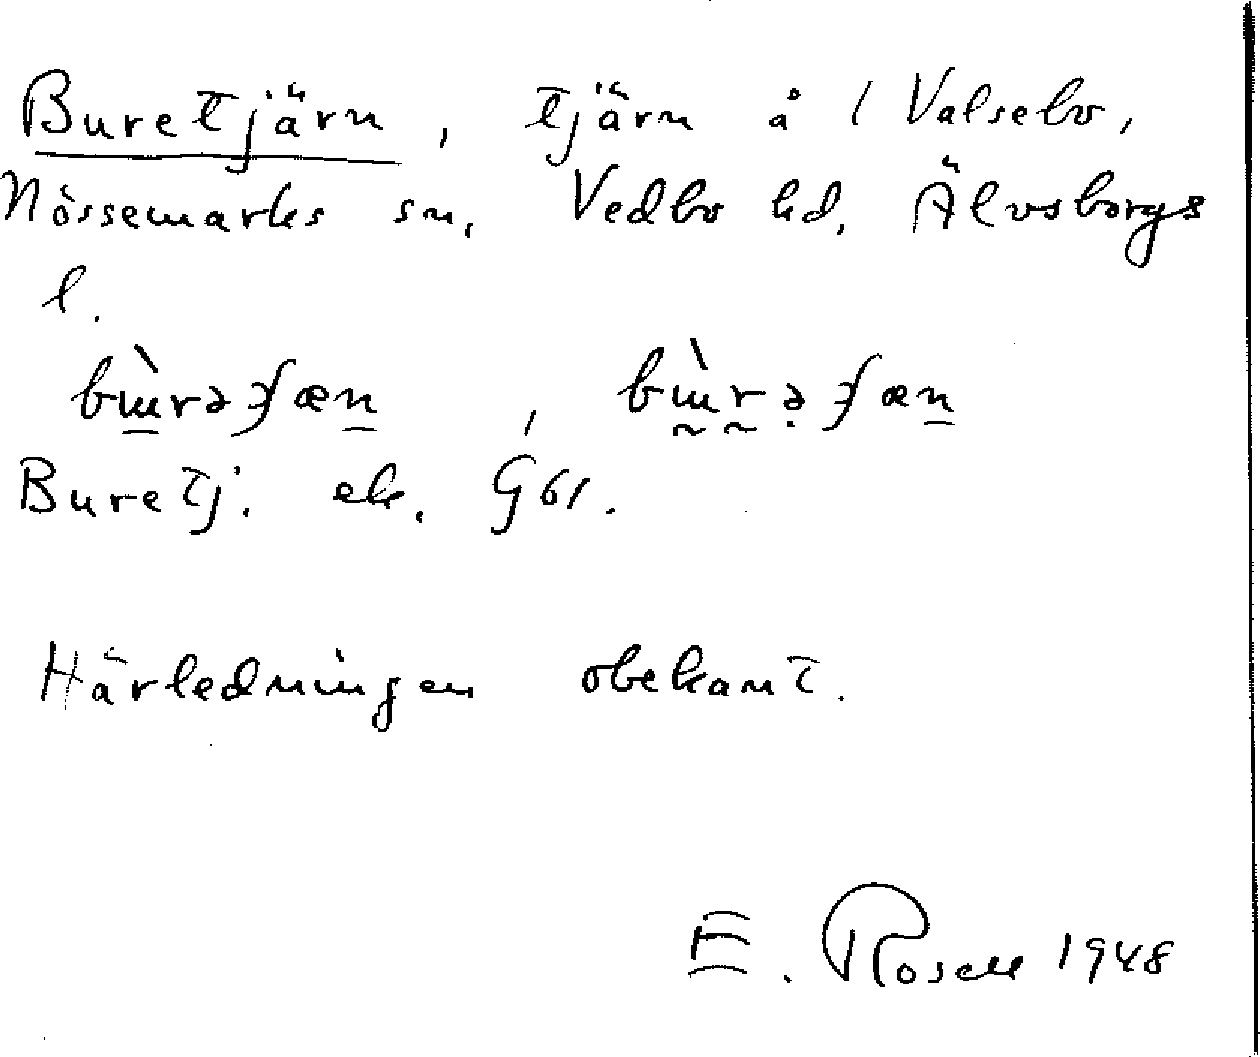 Buretjärn, tjärn å 1 Valsebo,
Nössemarks sn, Vedbo hd, Älvsborgs
l.
Buretj. ek. Gbl.
Härledningen obekant.
E. Rosell 1948